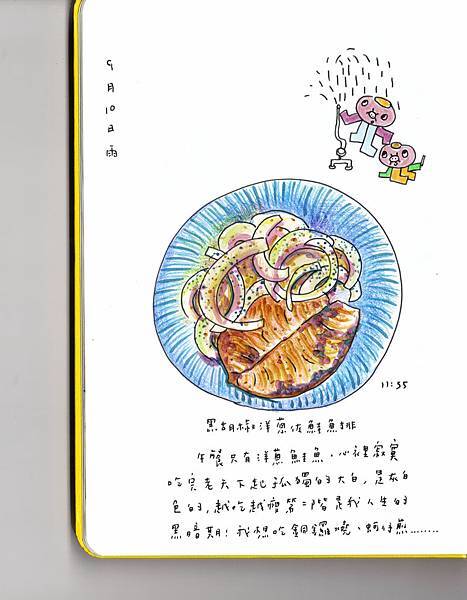 9月10日雨
11:35
黑胡椒洋蔥佐鮭魚排
午餐只有洋蔥鮭魚、心裡寂寞
吃完老天下起孤獨的大白,是灰白
色的,越吃越瘦第二階是我人生的
黑暗期!我想吃銅鑼燒、蚵仔煎........